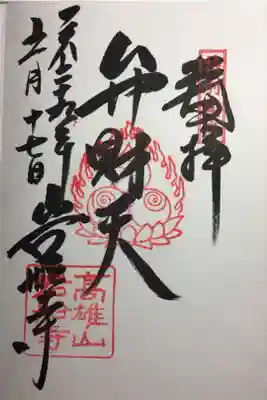 奉拝
弁財天
平成二十九年
十一月十七日
岩船寺
高雄山
岩船寺